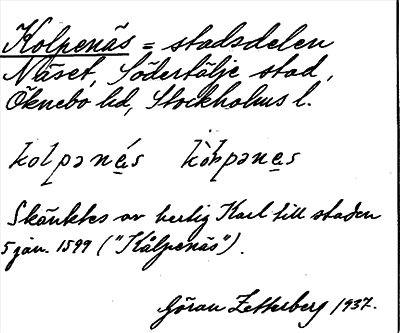 Kolpenäs = stadsdelen
Näset, Södertälje stad,
Öknebo hd, Stockholms l.
kolpənés kȯ̀lpənes
Skänktes av hertig Karl till staden
5 jan. 1599 ("Kålpenäs").
Göran Zetterberg 1937.